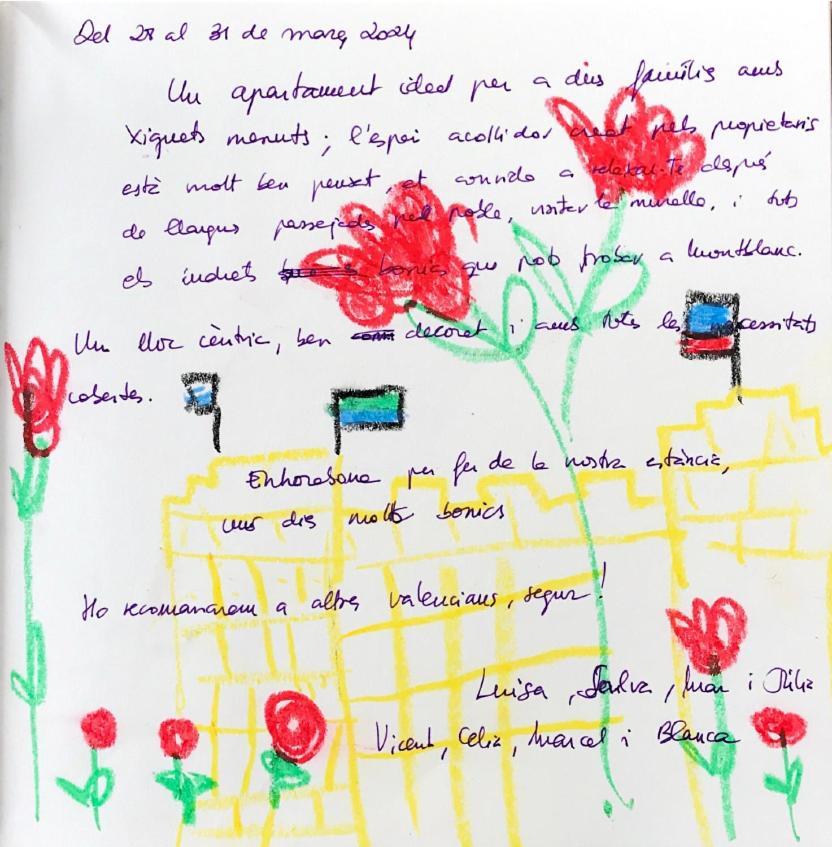 Del 28 al 31 de març 2024
Un apartament ideal per a dues famílies amb
xiquets menuts; l'espai acollidor creat pels propietaris
està molt ben pensat, et convida a relaxar-te després
de llargues passejades pel poble, visitar la muralla, i tots
els indrets bonics que pots trobar a Montblanc.
Un lloc cèntric, ben decorat i amb totes les necessitats
cobertes.
Enhorabona per fer de la nostra estància,
uns dies molts bonics
Ho recomanarem a altres valencians, segur!
Luisa, Salva, Mar i
Vicent, Celia, Marcel i Blanca